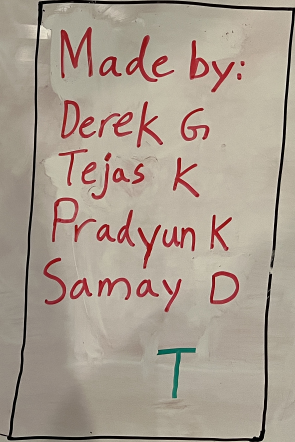 Made by:
Derek G
Tejas K
Pradyun K
Samay D
T